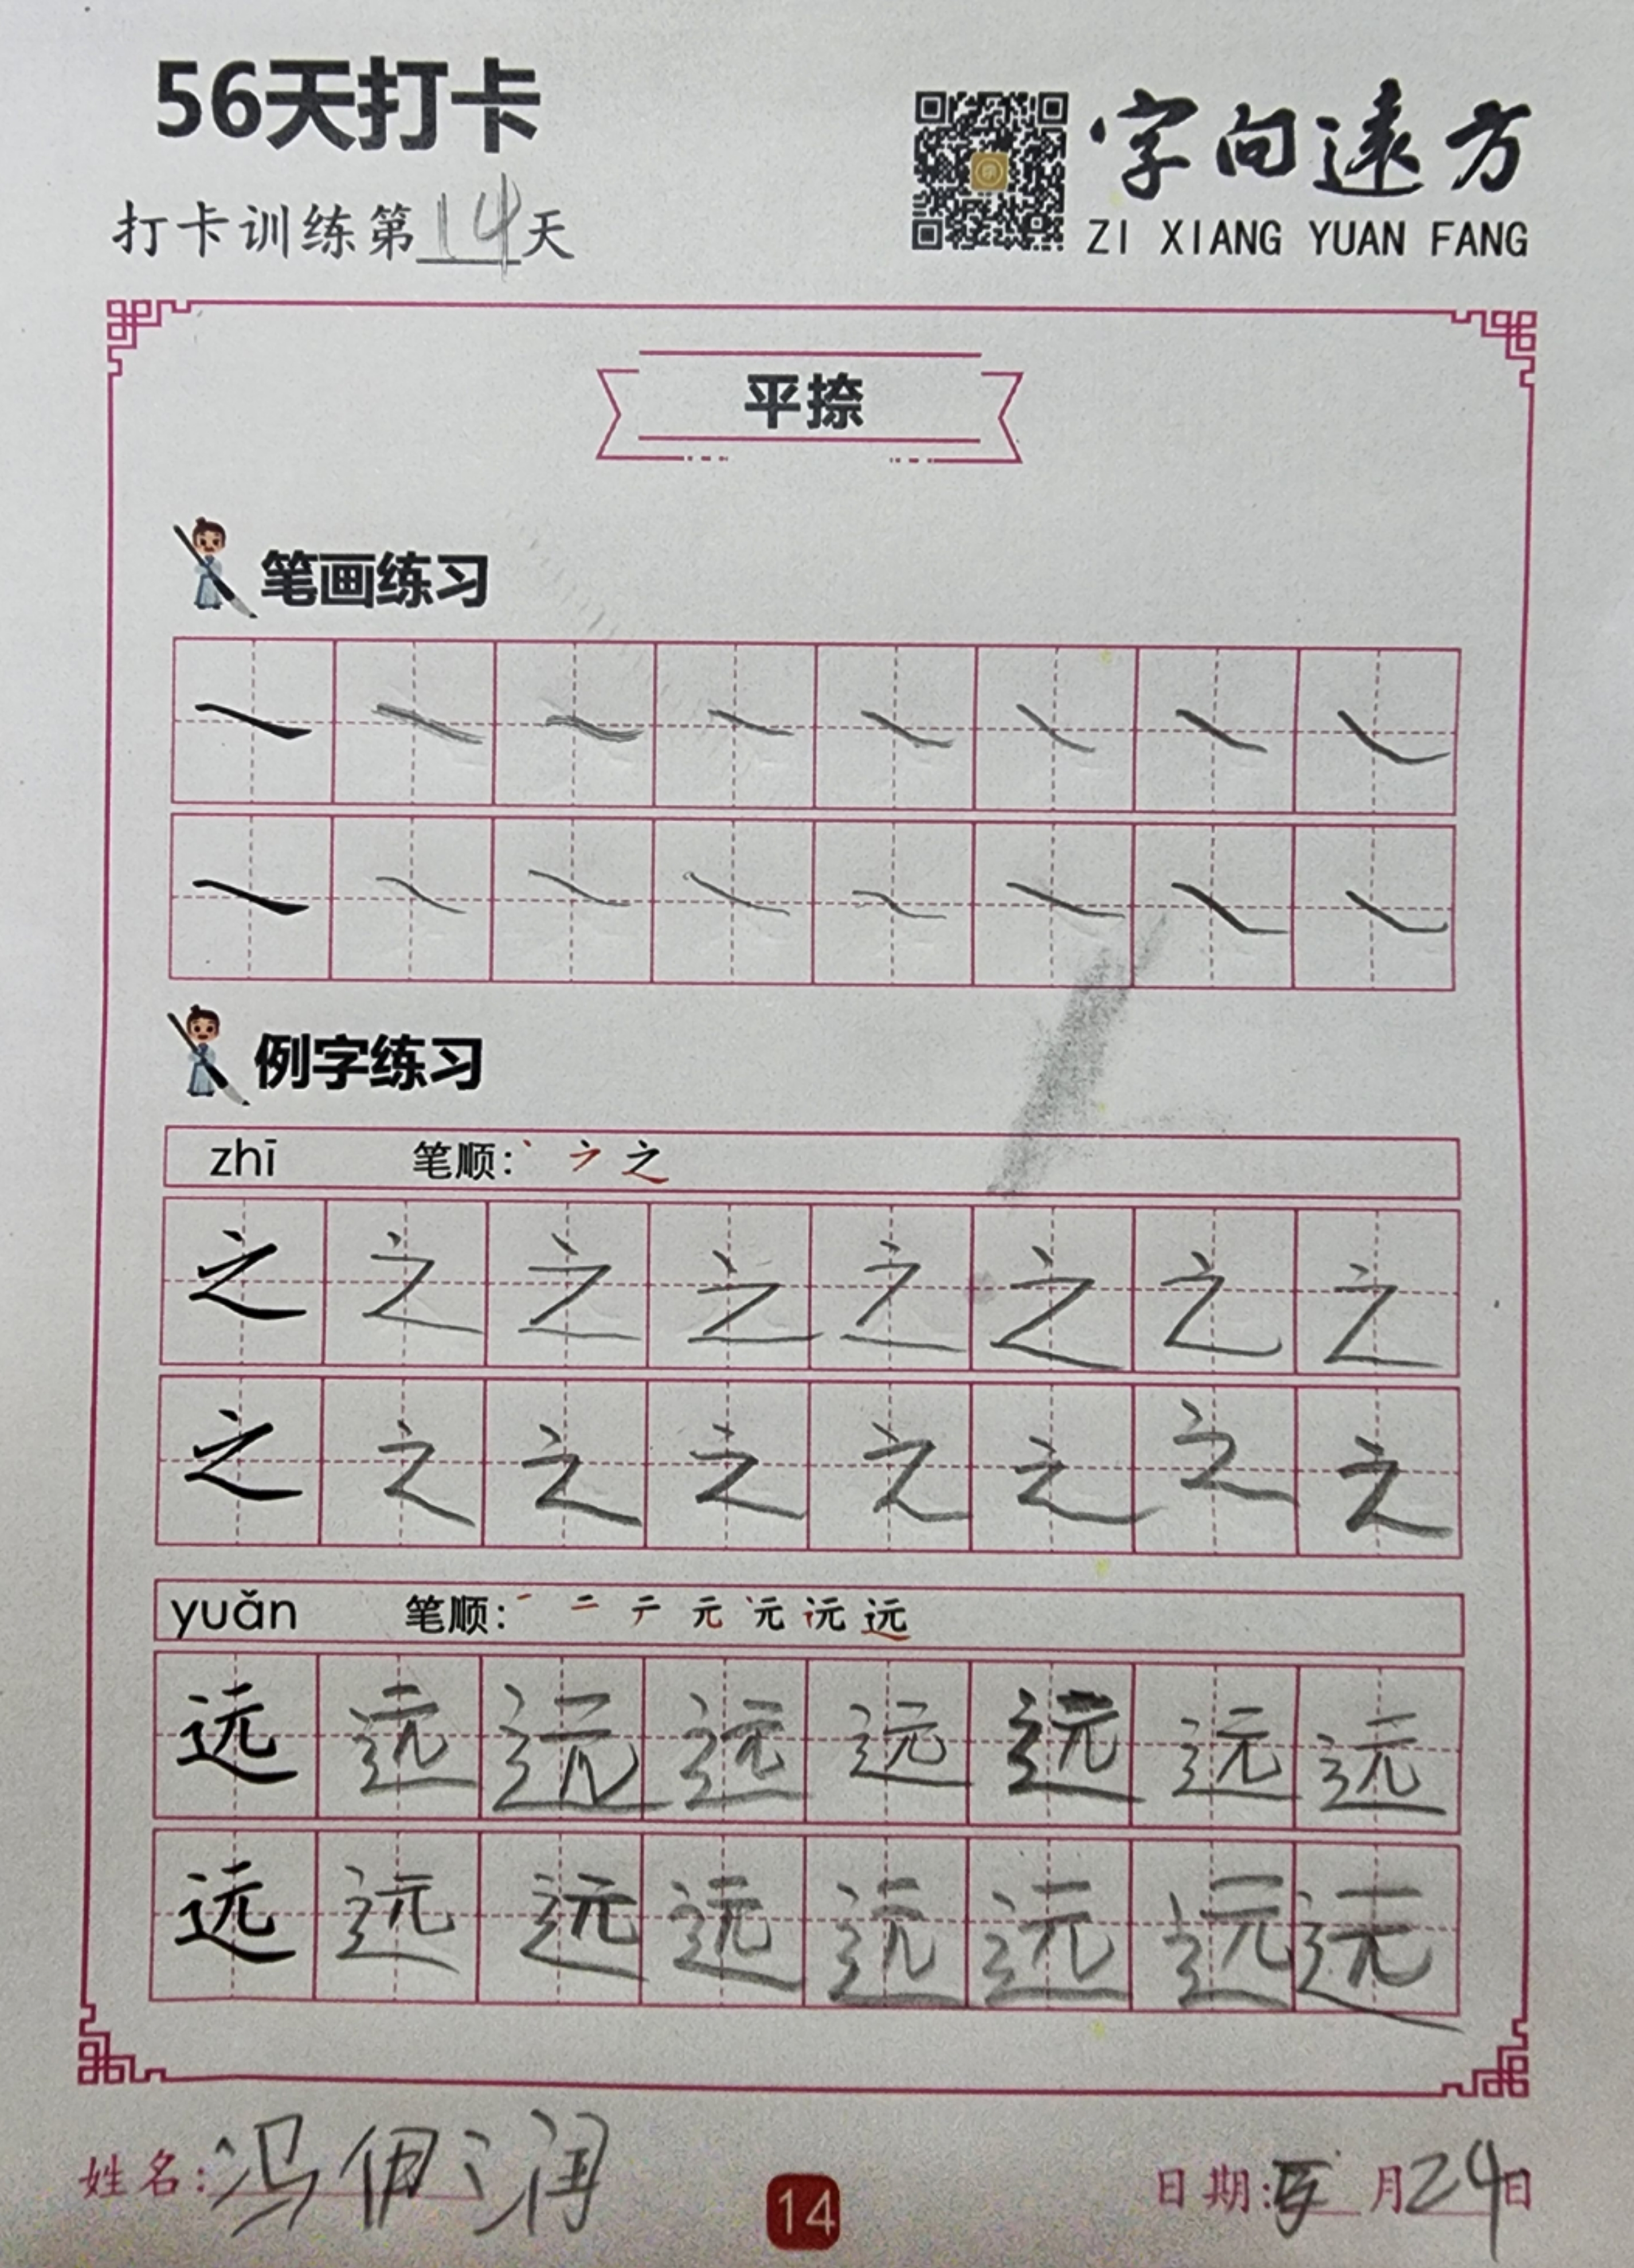 56天打卡
字向遠方
打卡训练第14天
ZI XIANG YUAN FANG
平捺
笔画练习
例字练习
zhī 笔顺: 丶 之
之 之 之 之 之 之 之 之
之 之 之 之 之 之 之 之
yuǎn 笔顺: 一 二 テ 元 远
远 远 远 远 远 远 远 远
远 远 远 远 远 远 远 远
姓名: 冯伊润
14
日期: 月24日